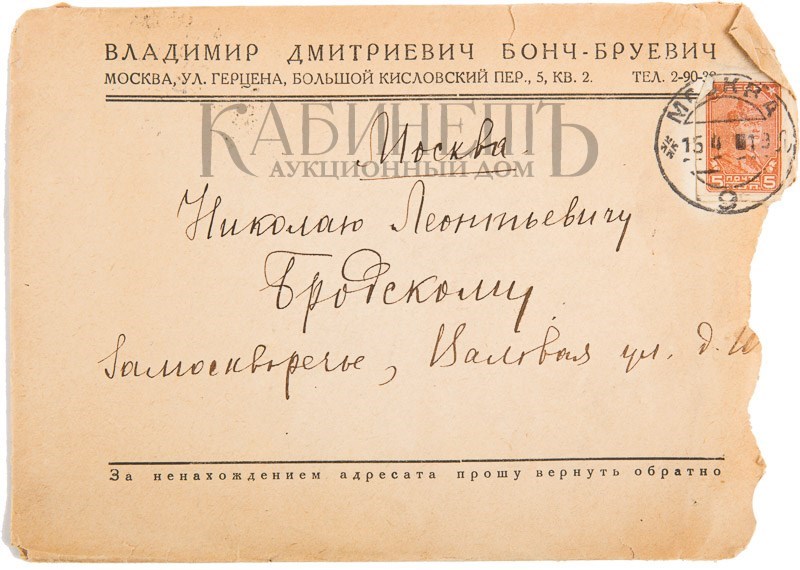 ВЛАДИМИР ДМИТРИЕВИЧ БОНЧ-БРУЕВИЧ
МОСКВА, УЛ. ГЕРЦЕНА, БОЛЬШОЙ КИСЛОВСКИЙ ПЕР., 5, КВ. 2. ТЕЛ. 2-90-38
КАБИНЕТЪ
АУКЦИОННЫЙ ДОМ
МОСКВА
15 4
9
ПОЧТА
5 5
Москва
Николаю Леонтьевичу
Бродскому
Замоскворечье, Валовая ул. д.
За ненахождением адресата прошу вернуть обратно